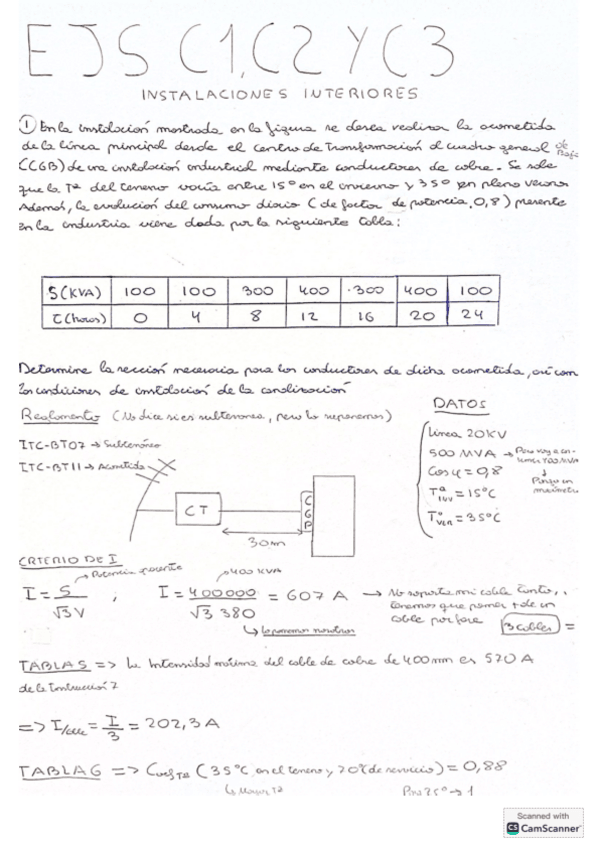 EJS C1, C2 Y C3
INSTALACIONES INTERIORES
① En la instalación mostrada en la figura se desea realizar la acometida
de la línea principal desde el centro de Transformación al cuadro general de Baja
(CGB) de una instalación industrial mediante conductores de cobre. Se sabe
que la Tª del terreno varía entre 15° en el invierno y 35° en pleno verano
Además, la evolución del consumo diario (de factor de potencia 0,8) presente
en la industria viene dada por la siguiente tabla:
S(KVA) 100 100 300 400 300 400 100
t(horas) 0 4 8 12 16 20 24
Determine la sección necesaria para los conductores de dicha acometida, así com
las condiciones de instalación de la canalización
DATOS
Reglamento (No dice si es subterránea, pero lo suponemos)
Línea 20KV
ITC-BT07 → Subterráneo
500 MVA →
ITC-BT11 → Acometida
Cos φ = 0,8
Tª inv = 15°C
Tª ver = 35°C
CT
CGP
30m
CRTERIO DE I
→ Potencia aparente
→ 400 KVA
I = S / √3 V ; I = 400000 / √3 380 = 607 A → No soporta mi cable tanto,
tenemos que poner + de un
cable por fase (3 cables) =
↳ lo ponemos nosotros
TABLA 5 => La Intensidad máxima del cable de cobre de 400mm es 570 A
de la Instrucción 7
=> I/cable = I/3 = 202,3 A
TABLA 6 => Coef Tª (35°C en el terreno y 70° de servicio) = 0,88
↳ Mayor Tª
Para 25° → 1
Scanned with
CS CamScanner